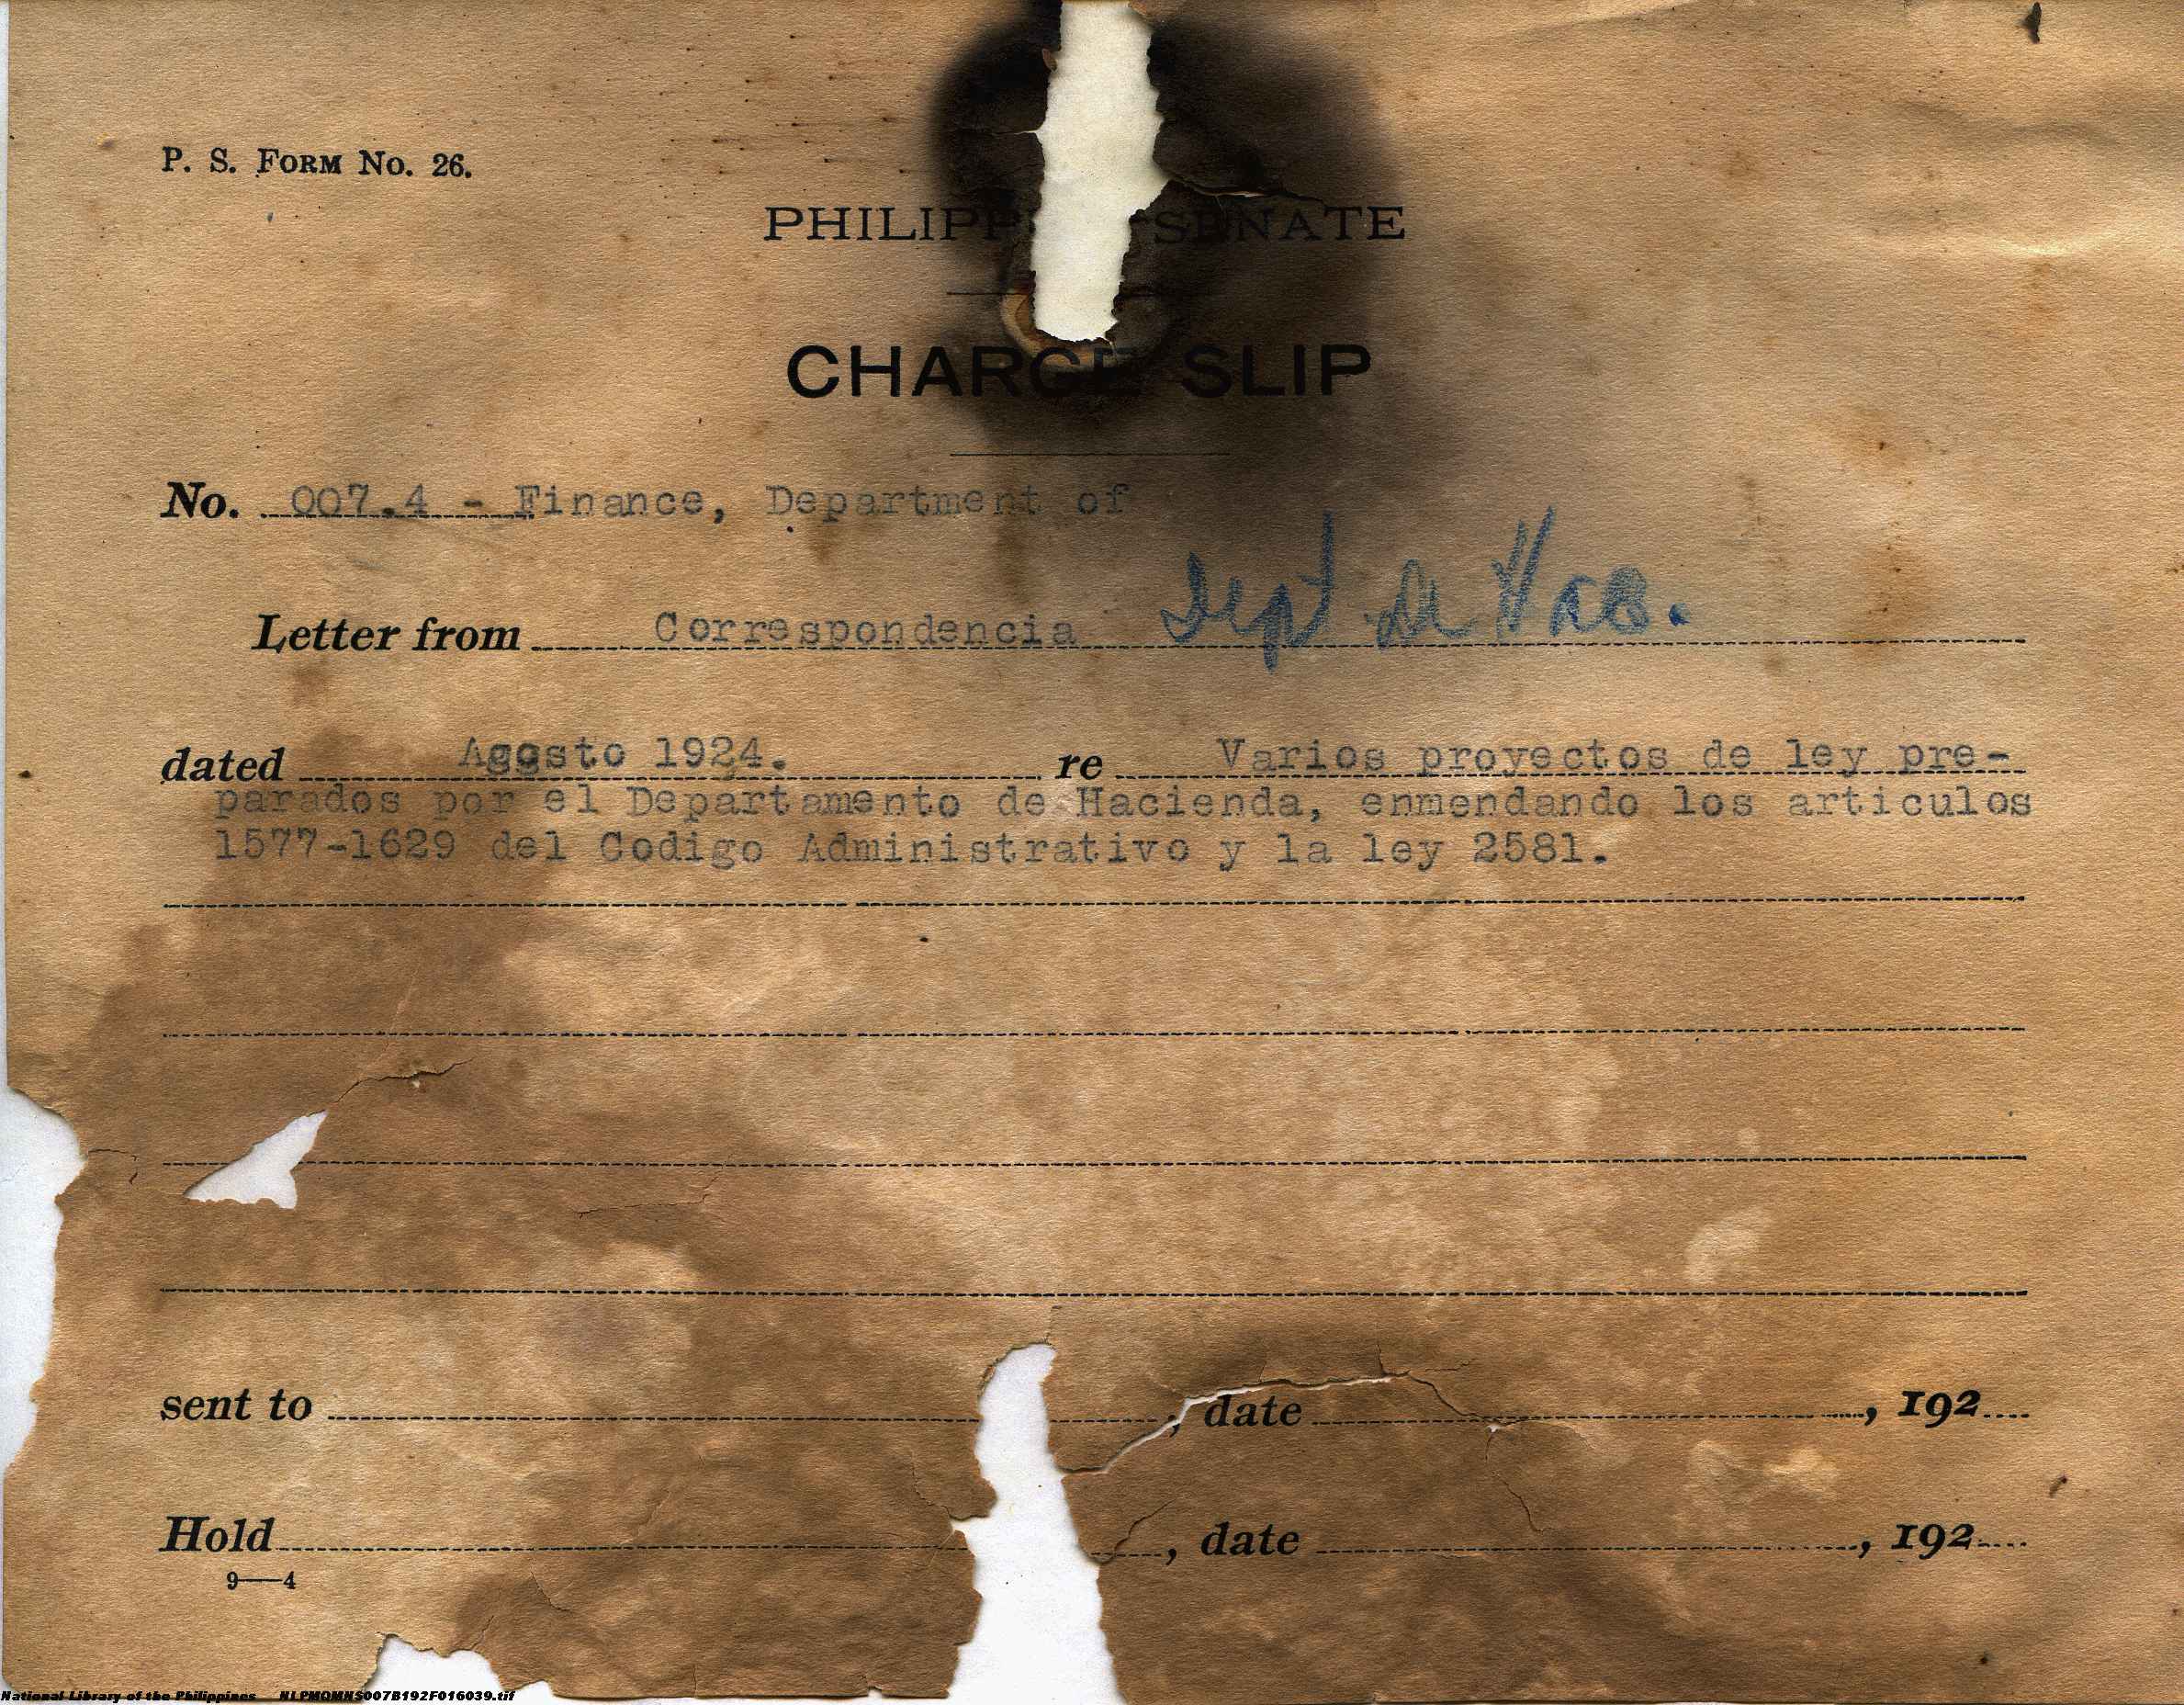 P. S. FORM NO. 26.
PHILIPP SENATE
CHARGE SLIP
No. 007.4 - Finance, Department of
Letter from Correspondencia Dept de Hac.
dated Agosto 1924. re Varios proyectos de ley pre-
parados por el Departamento de Hacienda, enmendando los articulos
1577-1629 del Codigo Administrativo y la ley 2581.
sent to , date , 192
Hold , date , 192
9—4
National Library of the Philippines NLPMQMNS007B192F016039.tif